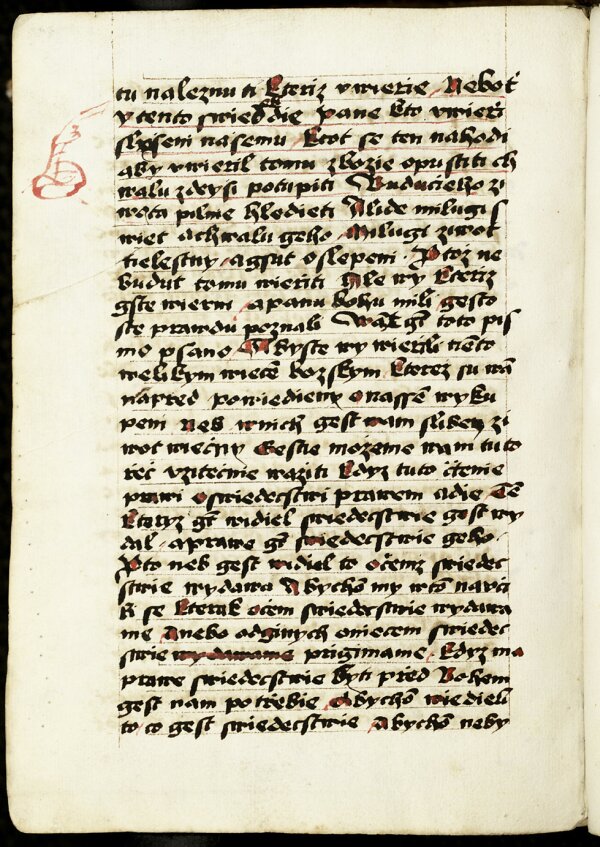 tu naleznuti kteriz vwierie Nebot
y tento swiedek die pane kto vwieri
slysseni nassemu ktot se ten nahodi
aby vwieril tomu zbozie opustiti ch
walu zdeysi potupiti Buducieho zi
wota pilne hledieti Alide milugi s
wiet achwalu geho Milugi ziwot
tielestny agsut oslepeni Protoz ne
budut tomu wieriti Ale wy kteriz
gste wierni apanu bohu mili gesto
ste prawdu poznali Wam gt toto pis
mo psano Abyste wy wierili tiemto
welikym wiecem bozskym kterez su wam
napred powiedieny onassem wyku
peni neb wnich gest wam sliben zi
wot wiecny Gestie mozeme wam tuto
rec vzitecnie waziti kdyz tuto ctenie
prawi oswiedecstwi prawem adie Ten
kteryz gt widiel swiedecstwie gest wy
dal aprawe gt swiedecstwie geho
Pto neb gest widiel to ocemz swiedec
stwie wydawa Abychom my wtom nauci
li se kterak ocem swiedecstwie wydawa
me Anebo odginych oniecem swiedec
stwie wydawame prigimame kdyz ma
prawe swiedecstwie byti pred Bohem
gest nam potrebie Abychom wiedieli
to co gest swiedecstwie Abychom neby